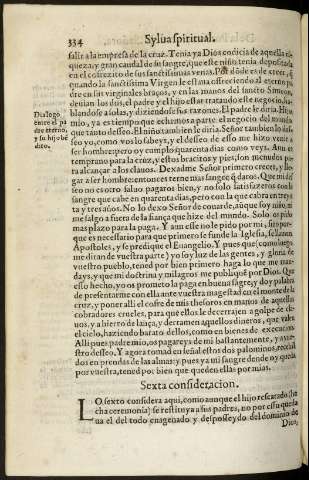 334 Sylua spiritual.
salir a la empresa de la cruz. Tenia ya Dios codicia de aquella ri-
queza, y gran caudal de su sangre, que este niño tenia depositada
en el cofrezito de sus sanctissimas venas. Por dõde es de creer, q̃
quando la sanctissima Virgen le estaua offreciendo al eterno pa
dre en sus virginales braços, y en las manos del sancto Simeon,
deuian los dos, el padre y el hijo estar tratando este negocio, ha-
blandose a solas, y diziendose sus razones. El padre le diria. Hijo
mio, ya es tiempo que echemos a parte el negocio del mundo
que tanto desseo. El niño tambien le diria. Señor tambien lo des-
seo yo, como vos lo sabeys, y el desseo de esso me hizo venir a
ser hombre: pero oy cumplo quarenta dias como veys. Aun es
temprano para la cruz, y estos bracitos y pies, son menudos pa-
ra alcançar a los clauos. Dexadme Señor primero crecer, y lle-
gar a ser hombre: entonces terne mas sangre q̃ daros. Que mi des
seo no es otro saluo pagaros bien, y no solo satisfazeros con la
sangre que cabe en quarenta dias, pero con la que cabra en treyn
ta y tres años. No lo dexo Señor de couarde, aũque soy niño, ni
me salgo a fuera de la fiança que hize del mundo. Solo os pido
mas plazo para la paga. Y aun esse no le pido por mi, sino por-
que es necessario para que primero se funde la Iglesia, se llamen
Apostoles, y se predique el Euangelio. Y pues que (como luego
me diran de vuestra parte) yo soy luz de las gentes, y gloria de
vuestro pueblo, tened por bien primero haga lo que me man-
days, y que mi doctrina y milagros me publiquẽ por Dios. Que
esso hecho, yo os prometo la paga en buena sangre, y doy palabra
de presentarme con ella ante vuestra magestad en el monte de la
cruz, y poner alli el cofre de mis thesoros en manos de aquellos
cobradores crueles, para que ellos le decerrajen a golpe de cla-
uos, y a hierro de lança, y derramen aquellos dineros, que valen
el cielo, haziendo barato dellos, como en bienes de execucion
Alli pues padre mio, os pagareys de mi bastantemente, y a nue-
stro desseo. Y agora tomad en señal estos dos palominos, recebi-
dos en prendas de las almas: y pues ya mi sangre dende oy queda
por vuestra, tened por bien que queden ellas por mias.
Dialogo
entre el pa
dre eterno,
y su hijo bẽ
dito.
Sexta consideracion.
LO sexto considera aqui, como aunque el hijo rescatado (he
cha ceremonia) se restituya a sus padres, no por esso queda
ua el del todo enagenado y desposseydo del dominio de
Dios,